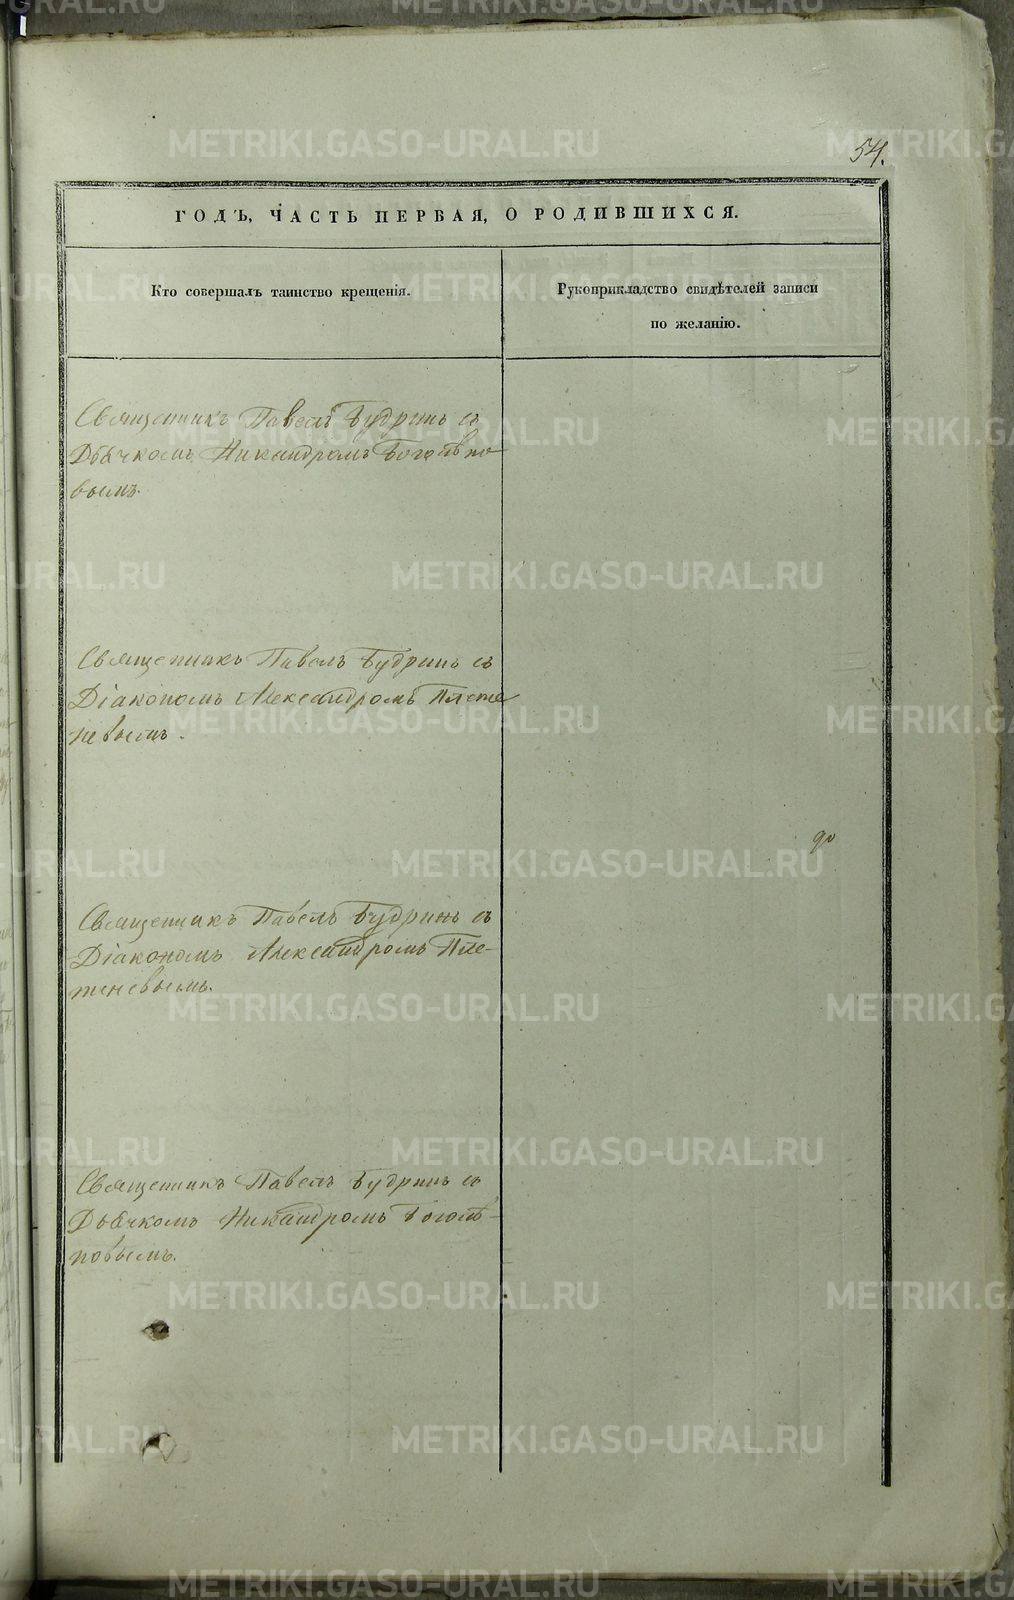 54.
ГОДЪ, ЧАСТЬ ПЕРВАЯ, О РОДИВШИХСЯ.
Кто совершалъ таинство крещенія.
Рукоприкладство свидѣтелей записи
по желанію.
Священникъ Павелъ Будринъ съ
Дьячкомъ Никандромъ Боголѣпо
вымъ.
Священникъ Павелъ Будринъ съ
Діакономъ Александромъ Плете
невымъ.
Священникъ Павелъ Будринъ съ
Діакономъ Александромъ Пле-
теневымъ.
Священникъ Павелъ Будринъ съ
Дьячкомъ Никандромъ Боголѣ-
повымъ.
METRIKI.GASO-URAL.RU